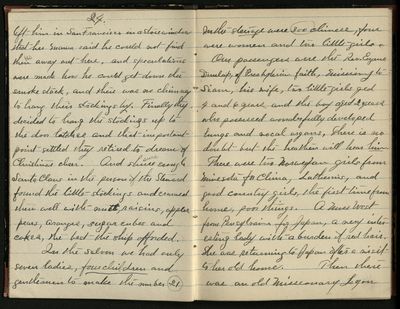 24.
left him in San Francisco in a store window
that her mama said he could not find
their way out here, and speculations
were made how he could get down the
smoke stack, and there was no chimney
to hang their stockings by. Finally they
decided to hang the stockings up to
the door latches and that important
point settled they retired to dream of
Christmas cheer. And sure enough
Santa Claus in the person of the Steward
found the little stockings and crammed
them well with nuts, raisins, apples
pears, oranges, sugar cubes and
cakes, the best the ship afforded.
In the saloon we had only
seven ladies, four children and
gentlemen to make the number 21
In the steerage were 300 chinese, four
were women and two little girls.
Our passengers were the Rev. Eugene
Dunlap, of Presbyterian faith, missionary to
Siam, his wife, two little girls aged
4 and 6 years and the boy aged 2 years
who possessed wonderfully developed
lungs and vocal organs, there is no
doubt but the heathen will hear him
There were two Norwegian girls from
Minnesota for China, Lutherans, and
good country girls, the first time from
home, poor things. A Miss West
from Pennsylvania for Japan, a very inter-
esting lady with a burden of red hair.
She was returning to Japan after a visit
to her old home. Then there
was an old Missionary,